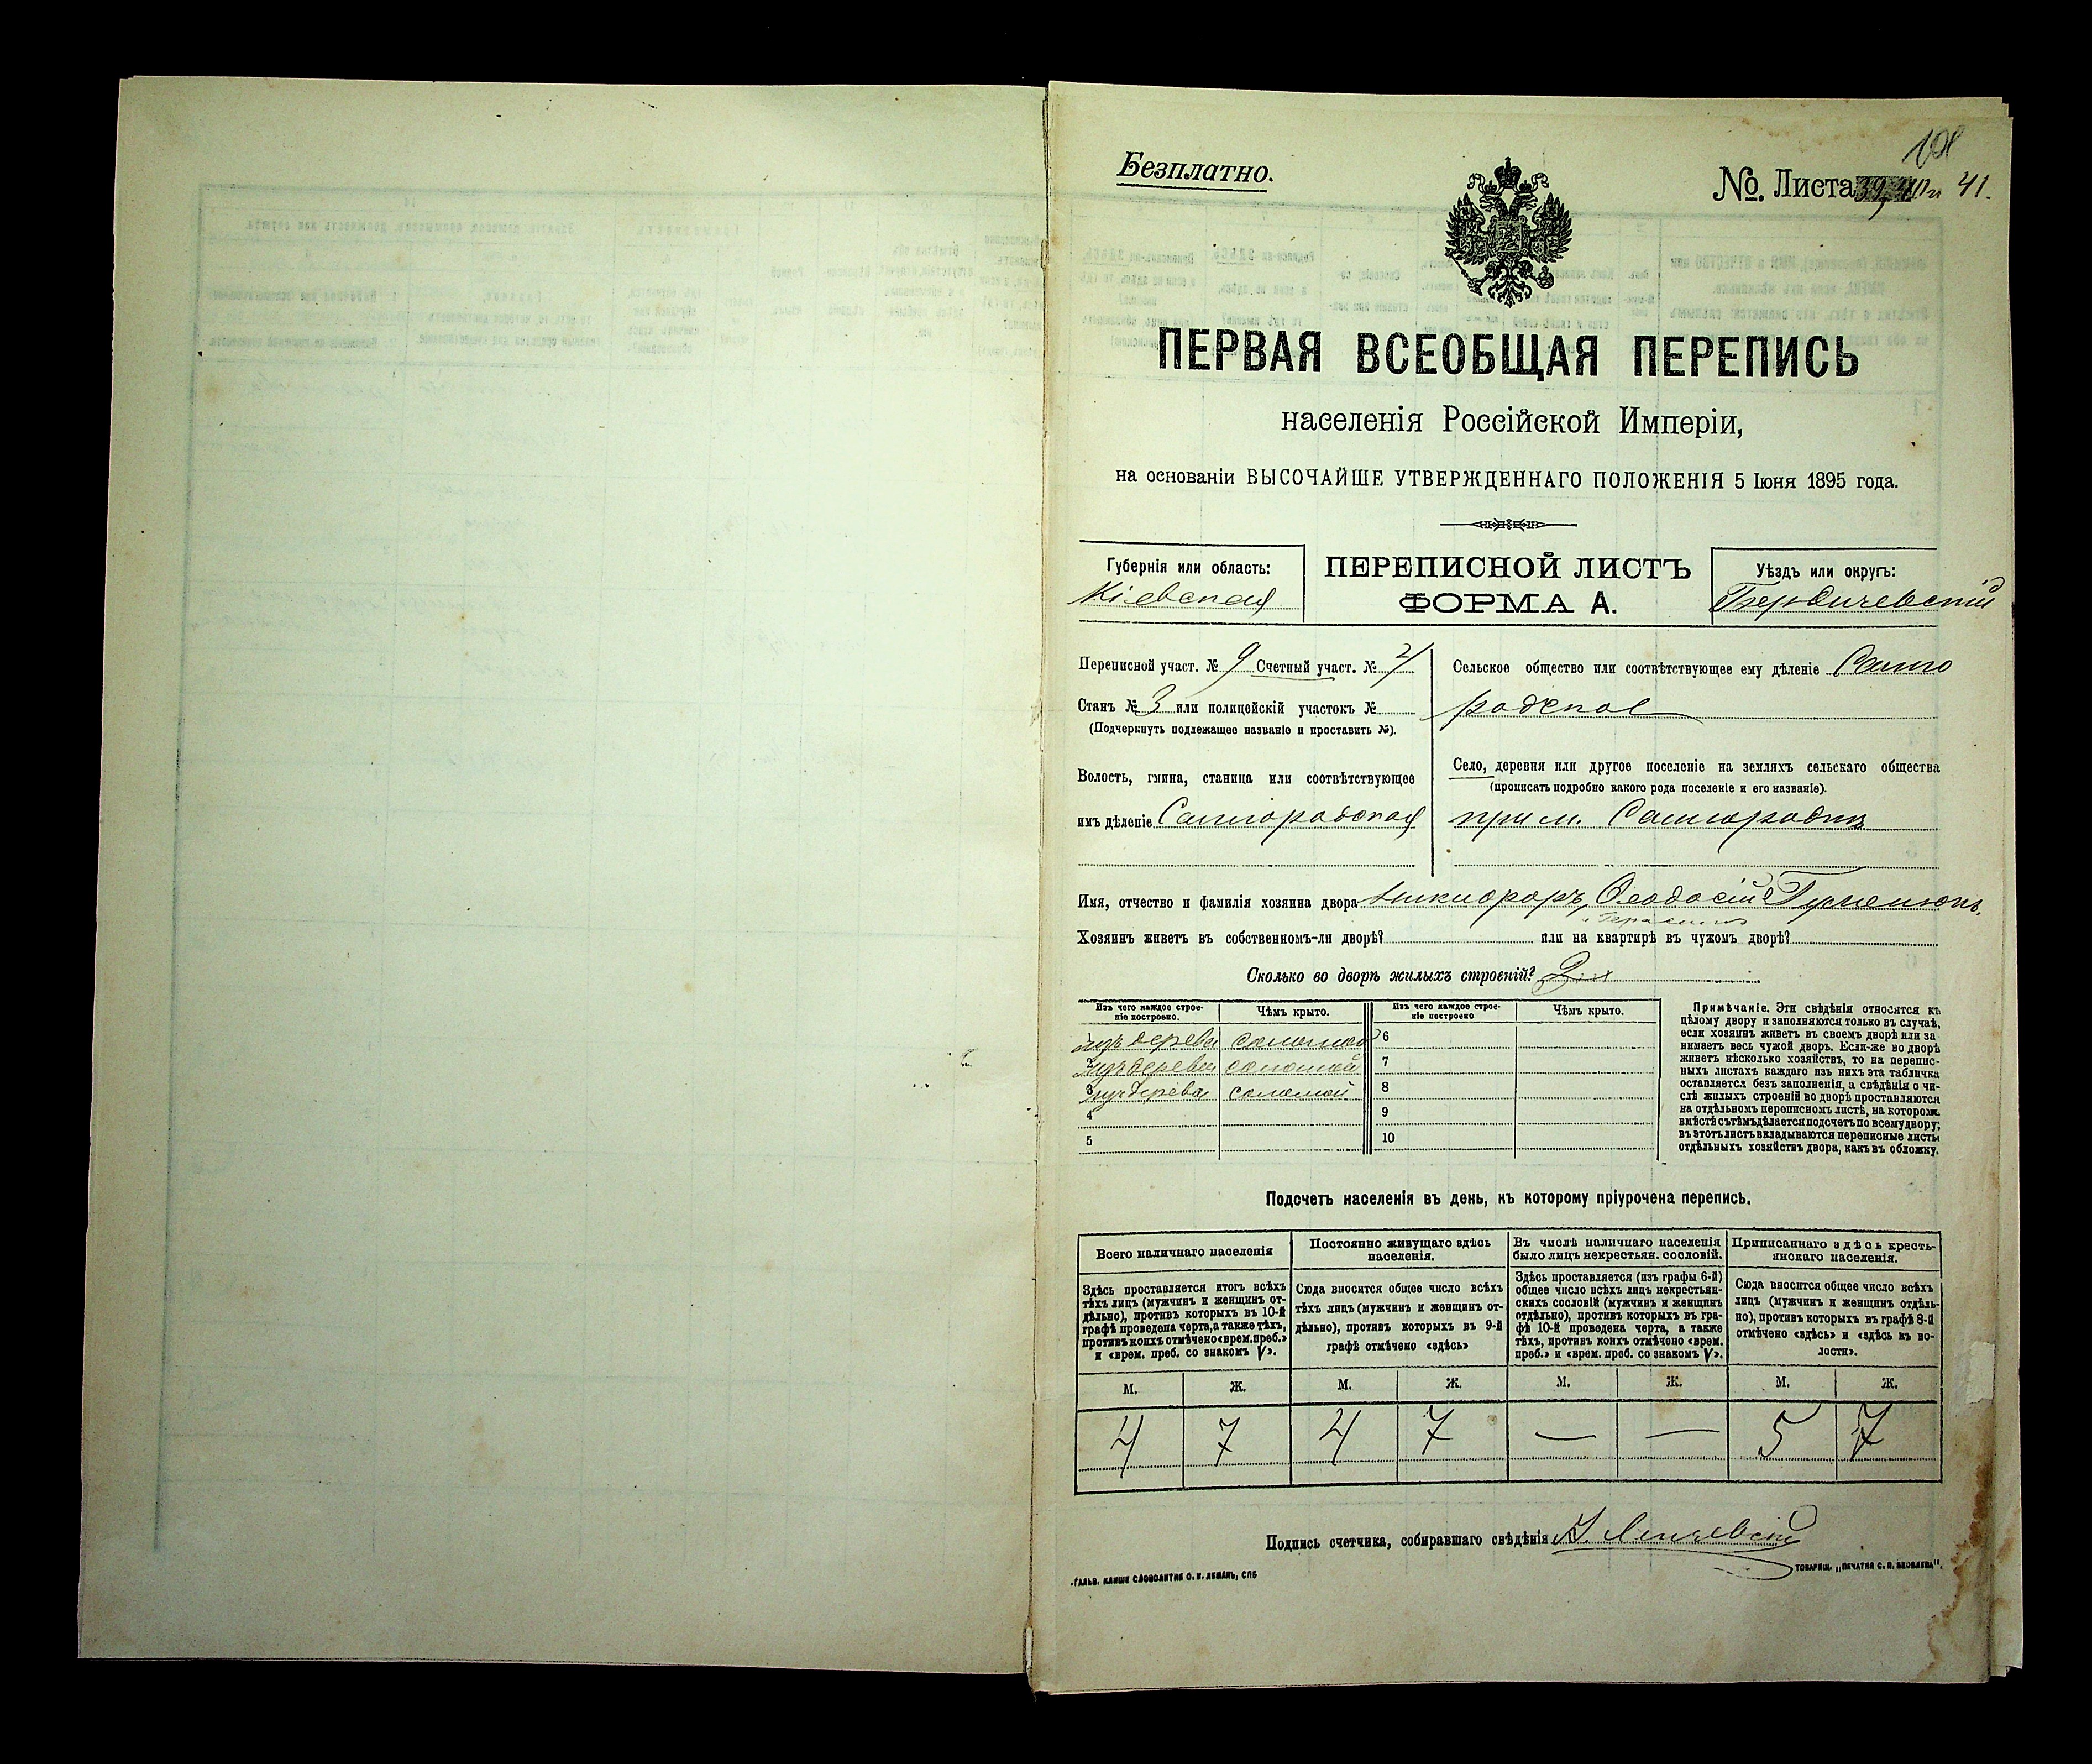 Безплатно.
108
№. Листа 39, 40 и 41.
ПЕРВАЯ ВСЕОБЩАЯ ПЕРЕПИСЬ
населенія Россійской Имперіи,
на основаніи ВЫСОЧАЙШЕ УТВЕРЖДЕННАГО ПОЛОЖЕНІЯ 5 Іюня 1895 года.
Губернія или область:
Кіевская
ПЕРЕПИСНОЙ ЛИСТЪ
ФОРМА А.
Уѣздъ или округъ:
Бердичевскій
Переписной участ. № 9 Счетный участ. № 4
Станъ № 3 или полицейскій участокъ №
(Подчеркнуть подлежащее названіе и проставить №).
Волость, гмина, станица или соотвѣтствующее
имъ дѣленіе Самгородская
Сельское общество или соотвѣтствующее ему дѣленіе Самго
родское
Село, деревня или другое поселеніе на земляхъ сельскаго общества
(прописать подробно какого рода поселеніе и его названіе).
при м. Самгородкѣ
Имя, отчество и фамилія хозяина двора Никифоръ, Феодосій
и Герасимъ
Хозяинъ живетъ въ собственномъ-ли дворѣ? или на квартирѣ въ чужомъ дворѣ?
Сколько во дворѣ жилыхъ строеній?
Изъ чего каждое строе-
ніе построено.
Чѣмъ крыто.
Изъ чего каждое строе-
ніе построено
Чѣмъ крыто.
изъ дерева соломой 6
2 изъ дерева соломой 7
3 изъ дерева соломой 8
4 9
5 10
Примѣчаніе. Эти свѣдѣнія относятся къ
цѣлому двору и заполняются только въ случаѣ,
если хозяинъ живетъ въ своемъ дворѣ или за
нимаетъ весь чужой дворъ. Если-же во дворѣ
живетъ нѣсколько хозяйствъ, то на перепис-
ныхъ листахъ каждаго изъ нихъ эта табличка
оставляется безъ заполненія, а свѣдѣнія о чи-
слѣ жилыхъ строеній во дворѣ проставляются
на отдѣльномъ переписномъ листѣ, на которомъ
вмѣстѣ съ тѣмъ дѣлается подсчетъ по всему двору;
въ этотъ листъ вкладываются переписные листы
отдѣльныхъ хозяйствъ двора, какъ въ обложку.
Подсчетъ населенія въ день, къ которому пріурочена перепись.
Всего наличнаго населенія
Здѣсь проставляется итогъ всѣхъ
тѣхъ лицъ (мужчинъ и женщинъ от-
дѣльно), противъ которыхъ въ 10-й
графѣ проведена черта, а также тѣхъ,
противъ коихъ отмѣчено «врем. преб.»
и «врем. преб. со знакомъ V».
Постоянно живущаго здѣсь
населенія.
Сюда вносится общее число всѣхъ
тѣхъ лицъ (мужчинъ и женщинъ от-
дѣльно), противъ которыхъ въ 9-й
графѣ отмѣчено «здѣсь»
Въ числѣ наличнаго населенія
было лицъ некрестьян. сословій.
Здѣсь проставляется (изъ графы 6-й)
общее число всѣхъ лицъ некрестьян-
скихъ сословій (мужчинъ и женщинъ
отдѣльно), противъ которыхъ въ гра-
фѣ 10-й проведена черта, а также
тѣхъ, противъ коихъ отмѣчено «врем.
преб.» и «врем. преб. со знакомъ V».
Приписаннаго здѣсь кресть-
янскаго населенія.
Сюда вносится общее число всѣхъ
лицъ (мужчинъ и женщинъ отдѣль-
но), противъ которыхъ въ графѣ 8-й
отмѣчено «здѣсь» и «здѣсь къ во-
лости».
М. Ж. М. Ж. М. Ж. М. Ж.
4 7 4 7 — — 5 7
Подпись счетчика, собиравшаго свѣдѣнія
ГАЛЬВ. КЛИШЕ СЛОВОЛИТНИ О. И. ЛЕМАНЪ, СПБ
ТОВАРИЩ. „ПЕЧАТНЯ С. П. ЯКОВЛЕВА".